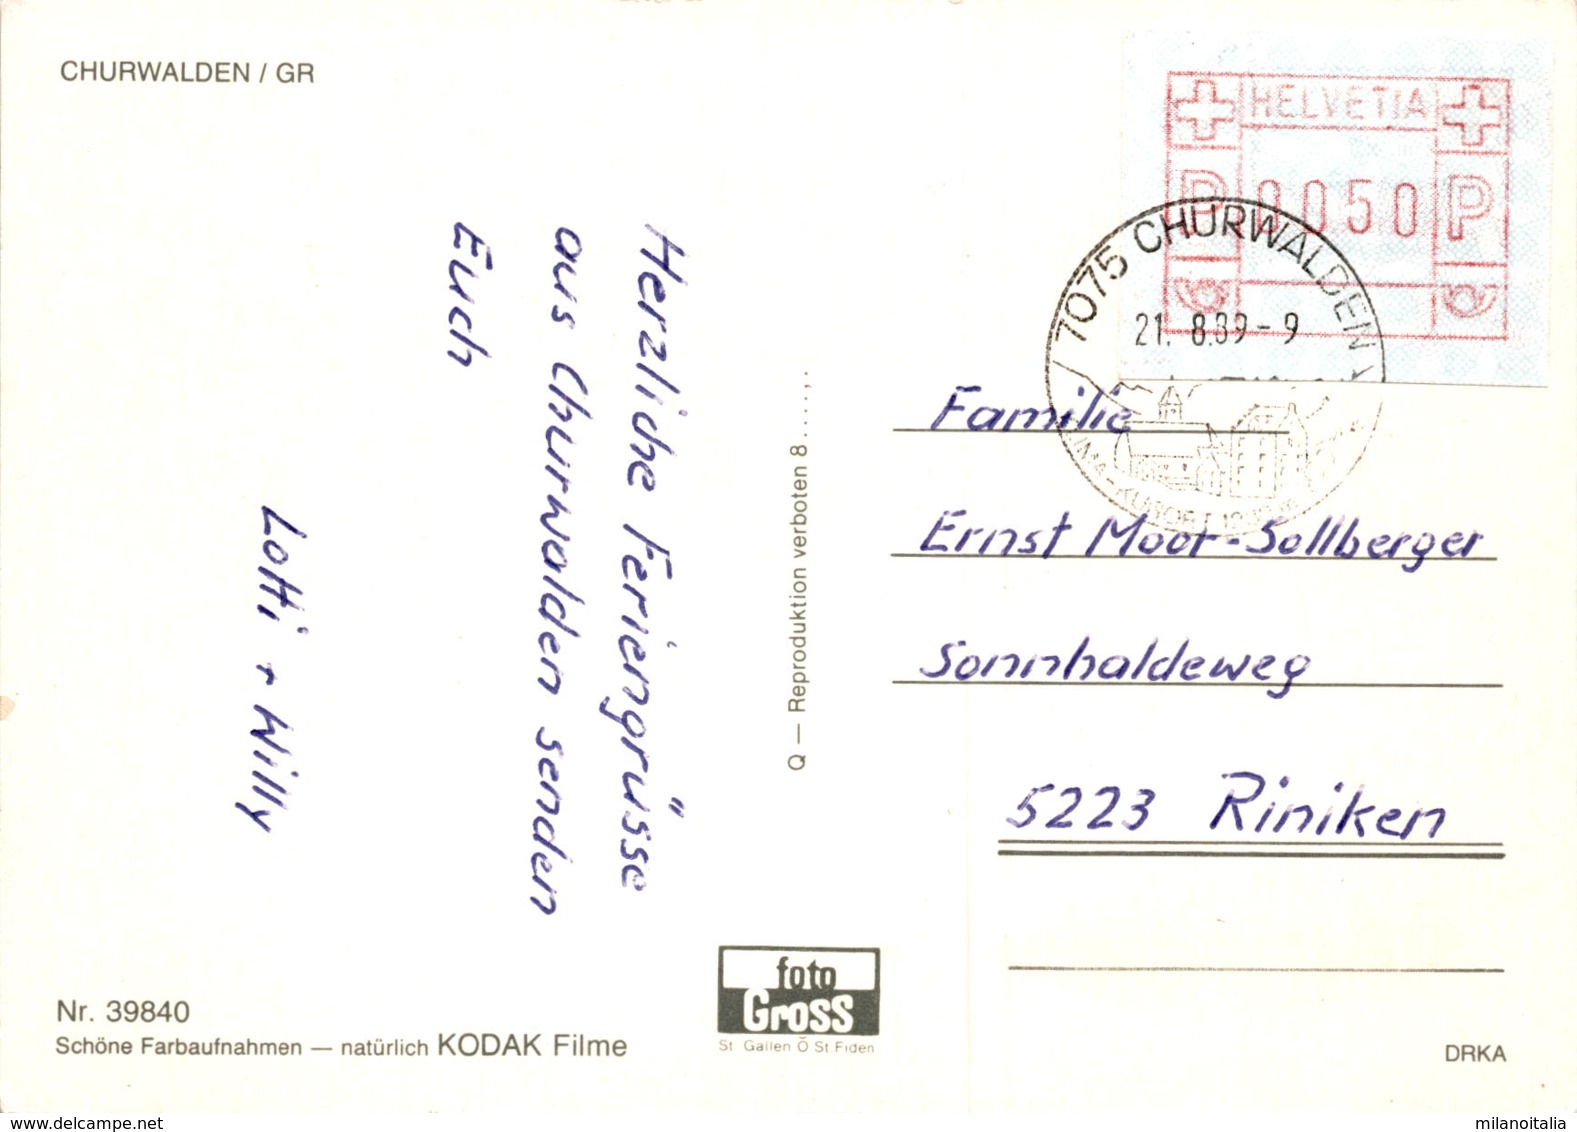 CHURWALDEN / GR
HELVETIA
P 0050 P
7075 CHURWALDEN
21. 8.89-9
Herzliche Feriengrüsse
aus Churwalden senden
Euch
Lotti + Willy
Q — Reproduktion verboten 8.....,.
Familie
Ernst Moor-Sollberger
Sonnhaldeweg
5223 Riniken
foto
Gross
St. Gallen O St Fiden
Nr. 39840
Schöne Farbaufnahmen — natürlich KODAK Filme
DRKA
My-delcampe.net
milanoitalia